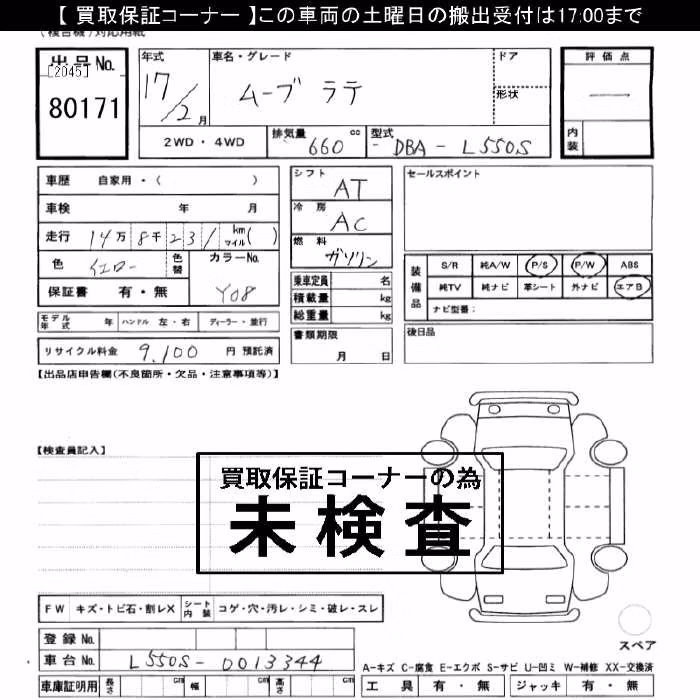 【 買取保証コーナー 】この車両の土曜日の搬出受付は17:00まで
(複合機)対応用紙
出品No.
[2045]
80171
年式
17/2月
車名・グレード
ムーブ ラテ
ドア
形状
評価点
—
内装
2WD・4WD
排気量 660 cc
型式 - DBA - L550S
車歴 自家用・( )
車検 年 月
走行 14万 8千 231 km マイル ( )
色 イエロー 色替
カラーNo. Y08
保証書 有・無
シフト AT
冷房 AC
燃料 ガソリン
乗車定員 名
積載量 kg
総重量 kg
セールスポイント
装備品
S/R 純A/W P/S P/W ABS
純TV 純ナビ 革シート 外ナビ エアB
ナビ型番:
モデル年式 年 ハンドル 左・右 ディーラー・並行
書類期限
月 日
後日品
リサイクル料金 9,100 円 預託済
【出品店申告欄(不良箇所・欠品・注意事項等)】
【検査員記入】
買取保証コーナーの為
未検査
FW キズ・トビ石・割レX シート内装 コゲ・穴・汚レ・シミ・破レ・スレ
登録No.
車台No. L550S-0013344
車庫証明用 長さ cm 幅 cm 高さ cm
スペア
A-キズ C-腐食 E-エクボ S-サビ U-凹ミ W-補修 XX-交換済
工具 有・無 ジャッキ 有・無